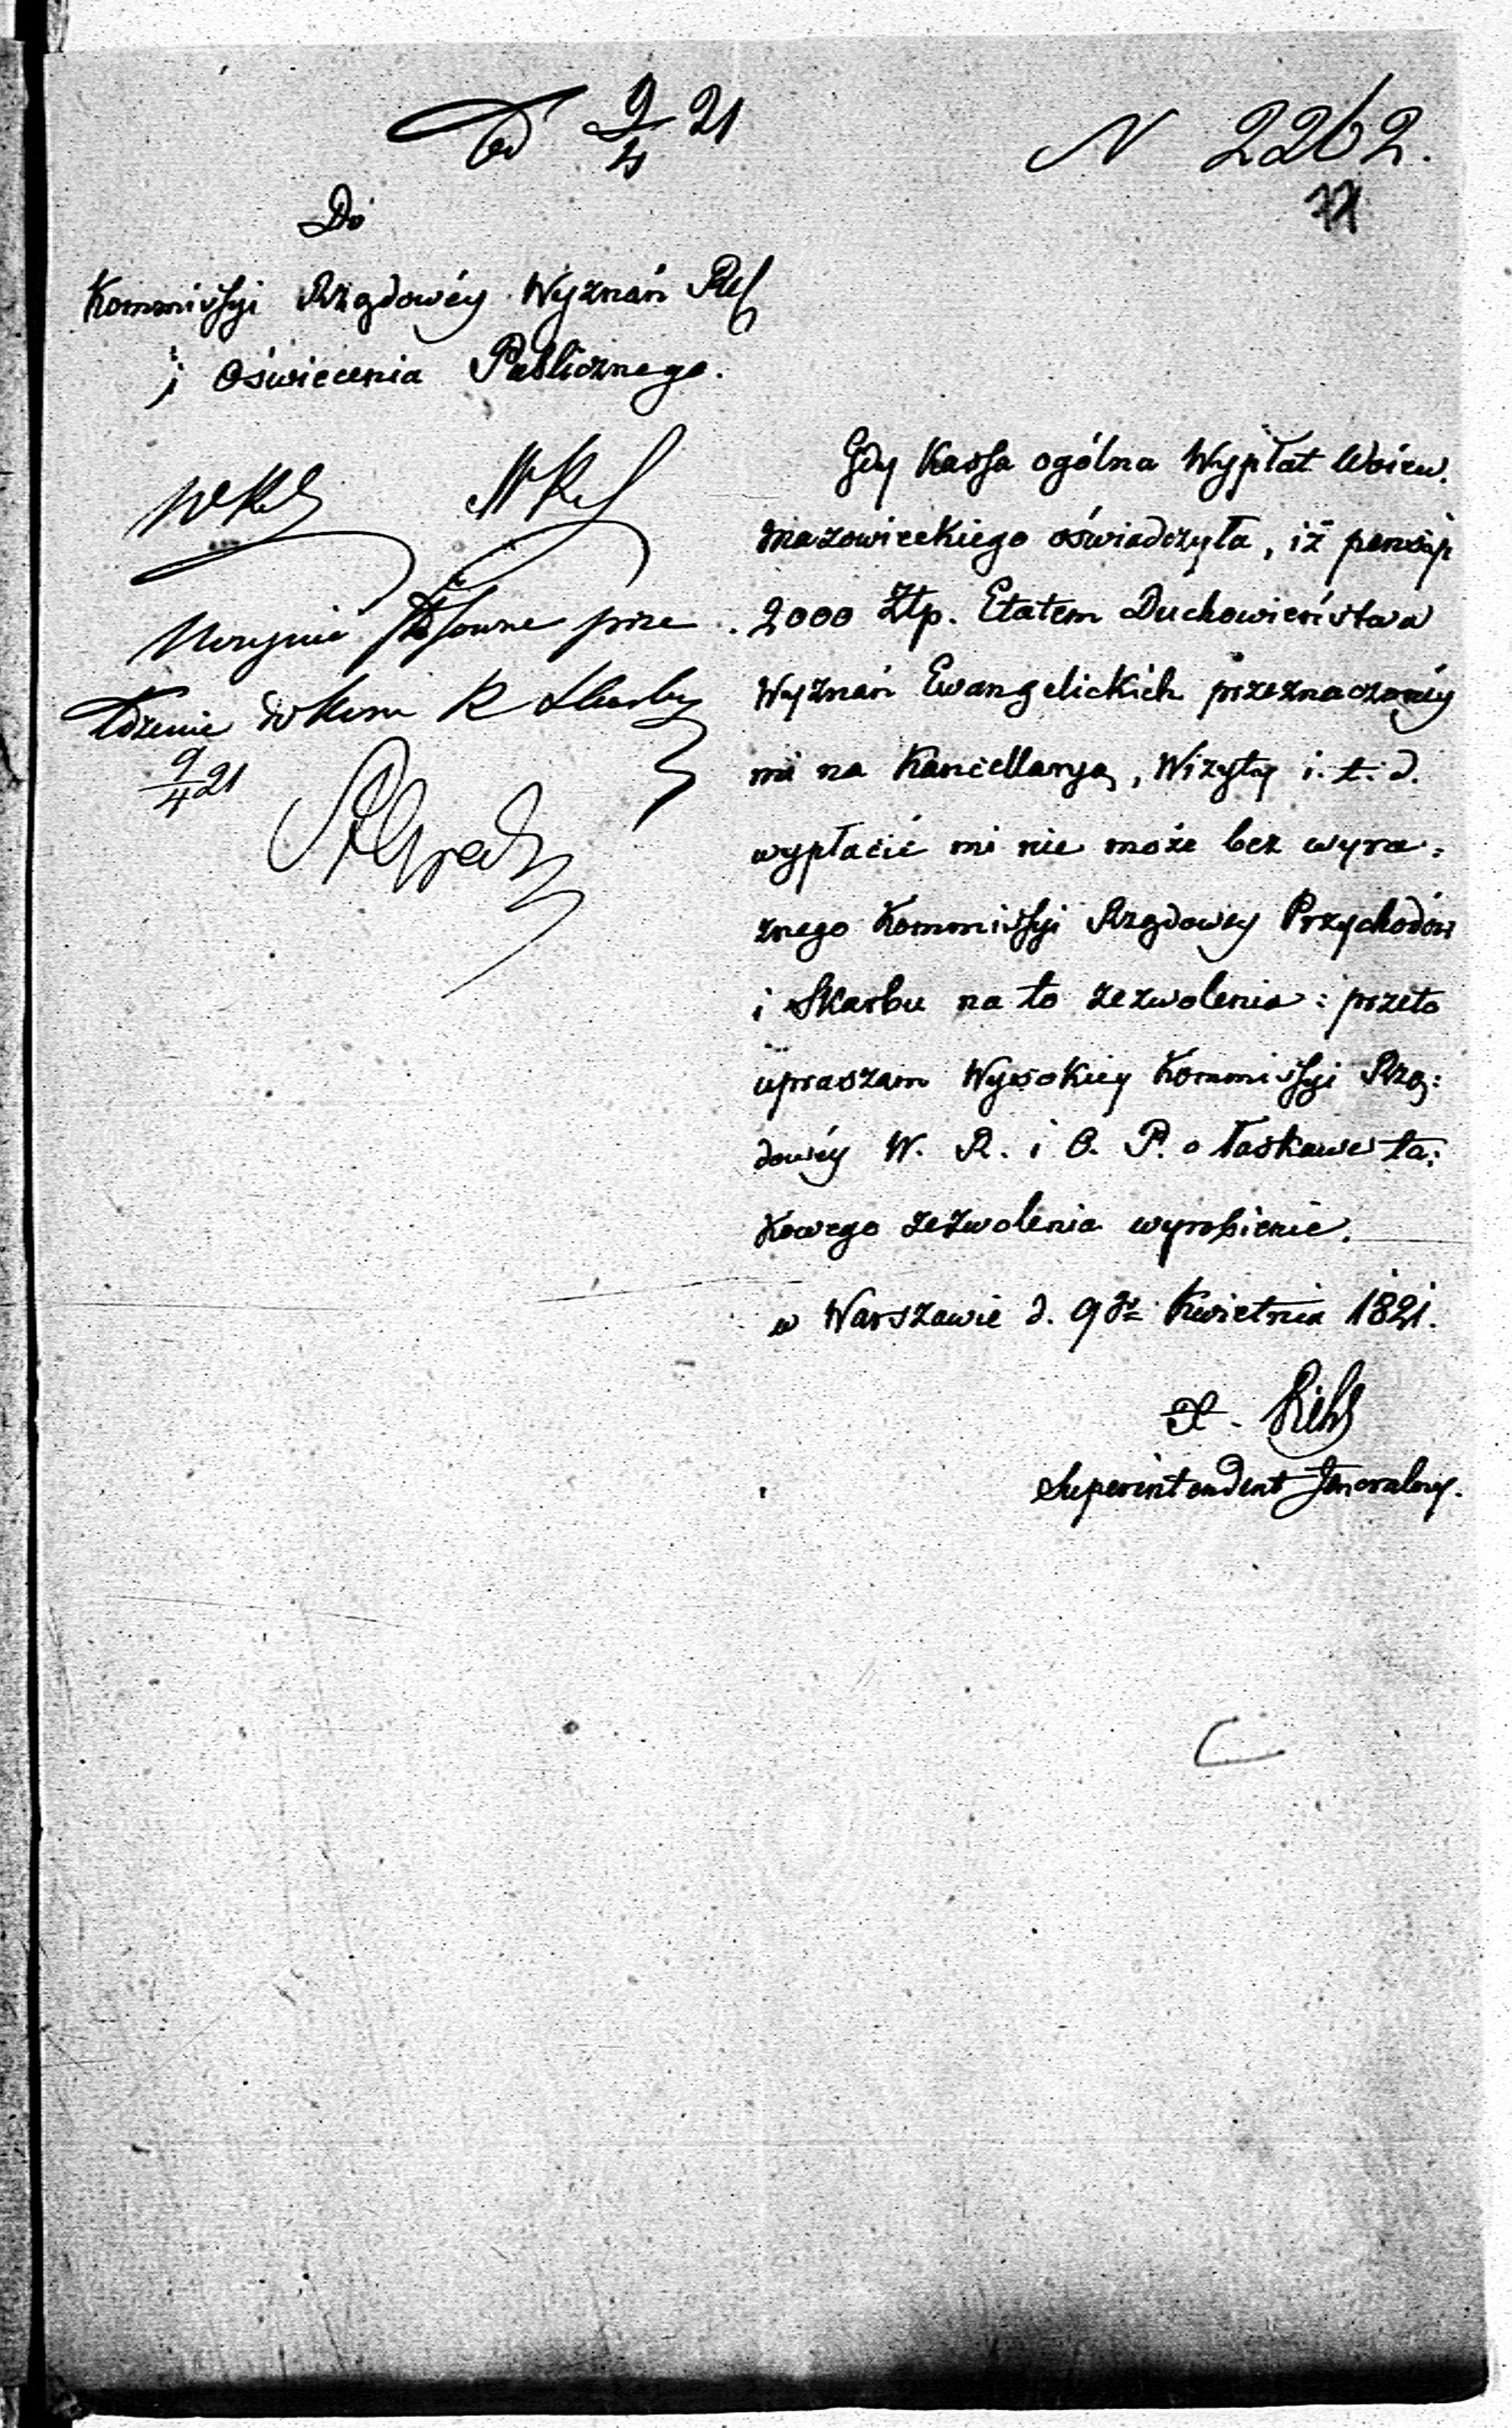 9/4 21
N 2262.
Do
Kommissyi Rządowéy Wyznań Rel
i Oświecenia Publicznego.
Uczynić stosowne prze
łożenie do Kom R Skarbu
9/4 21
Gdy Kassa ogólna Wypłat Woiew.
Mazowieckiego oświadczyła, iż pensyę
2000 Złp. Etatem Duchowieństwa
Wyznań Ewangelickich przeznaczonéy
mi na Kancellaryą, Wizyty i. t. d.
wypłacić mi nie może bez wyra:
znego Kommissyi Rządowey Przychodów
i Skarbu na to zezwolenia: przeto
upraszam Wysokiey Kommissyi Rzą:
dowéy W. R. i O. P. o łaskawe ta:
kowego zezwolenia wyrobienie.
w Warszawie d. 9 Kwietnia 1821.
Superintendent Jeneralny.